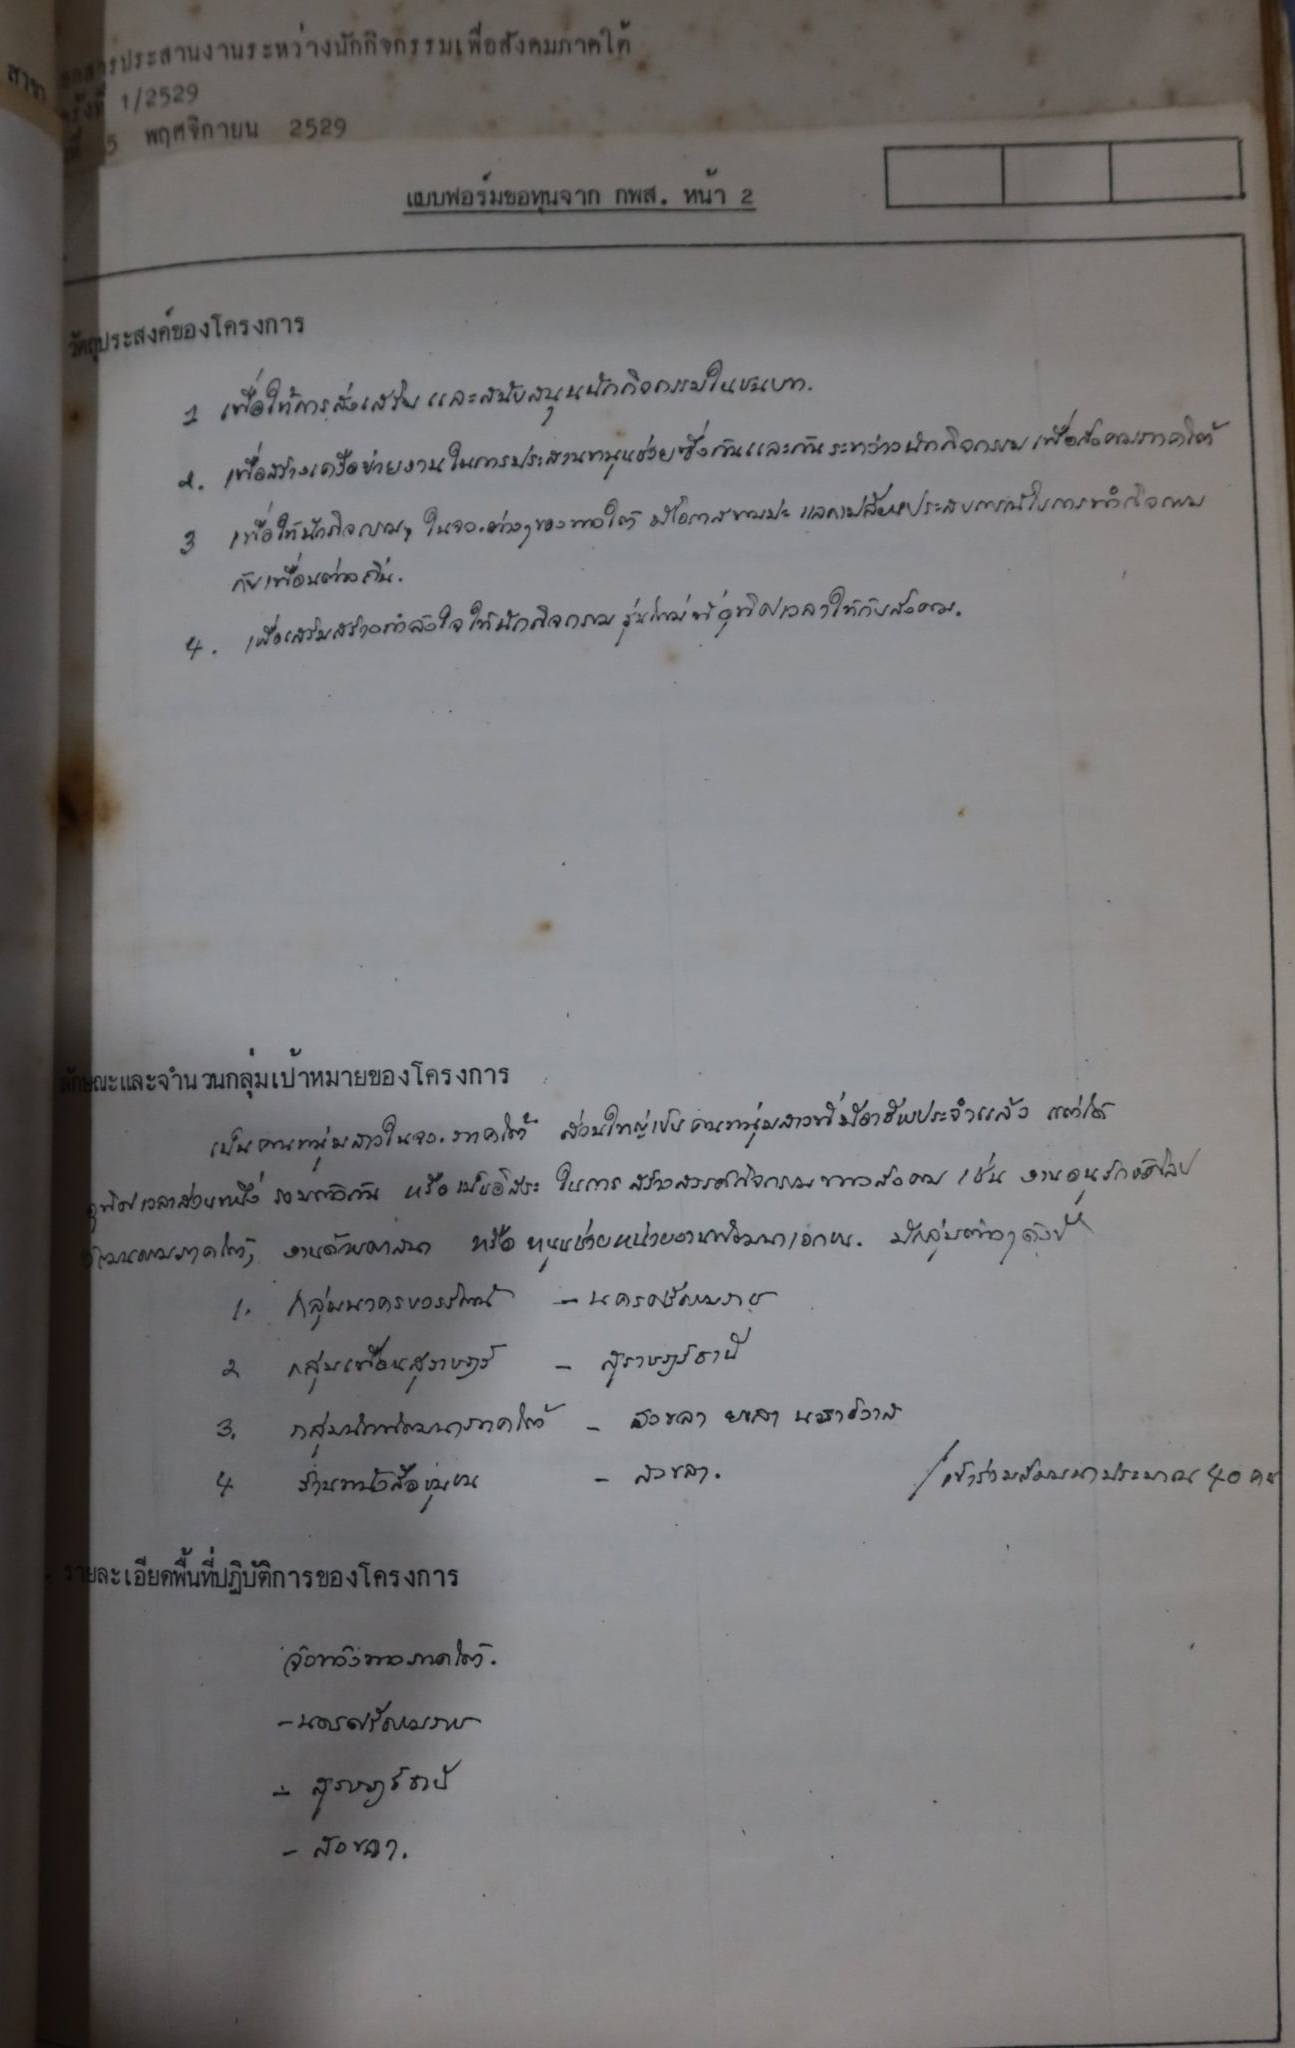 สารประสานงานระหว่างนักกิจกรรมเพื่อสังคมภาคใต้
ครั้งที่ 1/2529
5 พฤศจิกายน 2529
แบบฟอร์มขอทุนจาก กพส. หน้า 2
วัตถุประสงค์ของโครงการ
1 เพื่อให้การส่งเสริม และสนับสนุนนักกิจกรรมในชนบท.
2. เพื่อสร้างเครือข่ายงานในการประสานหนุนช่วยซึ่งกันและกันระหว่างนักกิจกรรมเพื่อสังคมภาคใต้
3 เพื่อให้นักกิจกรรมฯ ในจว.ต่างๆของภาคใต้ มีโอกาสพบปะ แลกเปลี่ยนประสบการณ์ในการทำกิจกรรม
กับเพื่อนต่างถิ่น.
4. เพื่อเสริมสร้างกำลังใจให้นักกิจกรรมรุ่นใหม่ที่อุทิศเวลาให้กับสังคม.
ลักษณะและจำนวนกลุ่มเป้าหมายของโครงการ
เป็นคนหนุ่มสาวในจว.ภาคใต้ ส่วนใหญ่เป็นคนหนุ่มสาวที่มีอาชีพประจำแล้ว แต่ได้
อุทิศเวลาส่วนหนึ่ง รวมตัวกัน หรือเป็นอิสระ ในการสร้างสรรค์กิจกรรมทางสังคม เช่น งานอนุรักษ์ศิลป
วัฒนธรรมภาคใต้, งานด้านศาสนา หรือ หนุนช่วยหน่วยงานพัฒนาเอกชน. มีกลุ่มต่างๆ ดังนี้
1. กลุ่มนาครบวรรัตน์ - นครศรีธรรมราช
2 กลุ่มเพื่อนสุราษฎร์ - สุราษฎร์ธานี
3. กลุ่มนักพัฒนาภาคใต้ - สงขลา ยะลา นราธิวาส
4 ร้านหนังสือชุมชน - สงขลา.
/เข้าร่วมสัมมนาประมาณ 40 คน
รายละเอียดพื้นที่ปฏิบัติการของโครงการ
จังหวัดทางภาคใต้.
- นครศรีธรรมราช
- สุราษฎร์ธานี
- สงขลา.